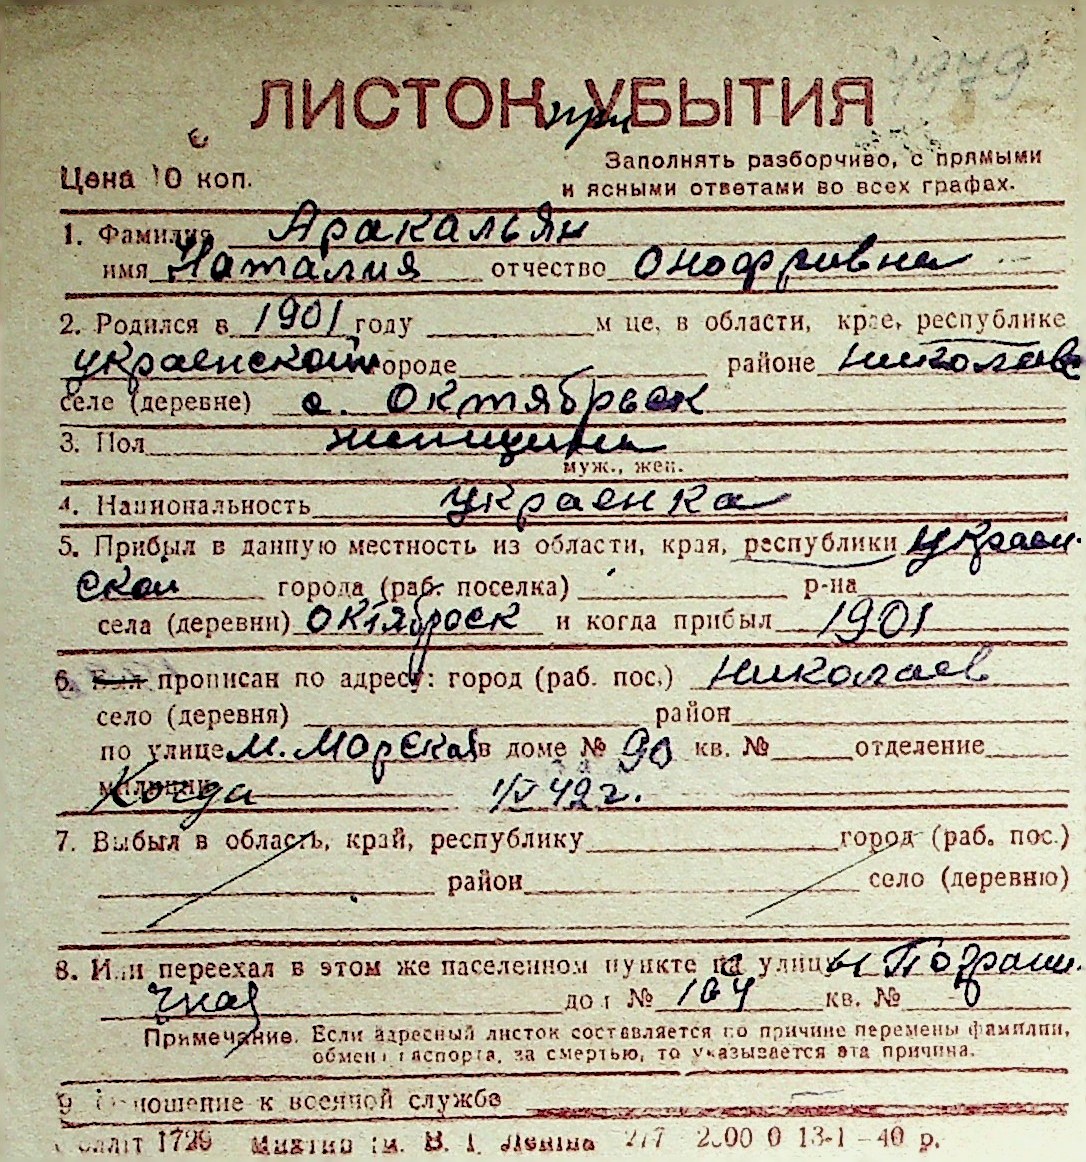 4979
ЛИСТОК УБЫТИЯ
при
Цена 10 коп.
Заполнять разборчиво, с прямыми
и ясными ответами во всех графах.
1. Фамилия Аракальян
имя Наталия отчество Онофривна
2. Родился в 1901 году м-це, в области, крае, республике
украенской городе районе Николаевс
селе (деревне) с. Октябрьск
3. Пол женщина
муж., жен.
4. Национальность украенка
5. Прибыл в данную местность из области, края, республики Украен-
ской города (раб. поселка) р-на
села (деревни) Октяброск и когда прибыл 1901
6. Был прописан по адресу: город (раб. пос.) Николаев
село (деревня) район
по улице М. Морская в доме № 90 кв. № отделение
милиции Когда 1/V 42 г.
7. Выбыл в область, край, республику город (раб. пос.)
район село (деревню)
8. Или переехал в этом же населенном пункте на улицы Пограни-
чная дом № 164 кв. № 0
Примечание. Если адресный листок составляется по причине перемены фамилии,
обмена паспорта, за смертью, то указывается эта причина.
9. Отношение к военной службе
1729 им. В. І. Леніна 277 13-1-40 р.